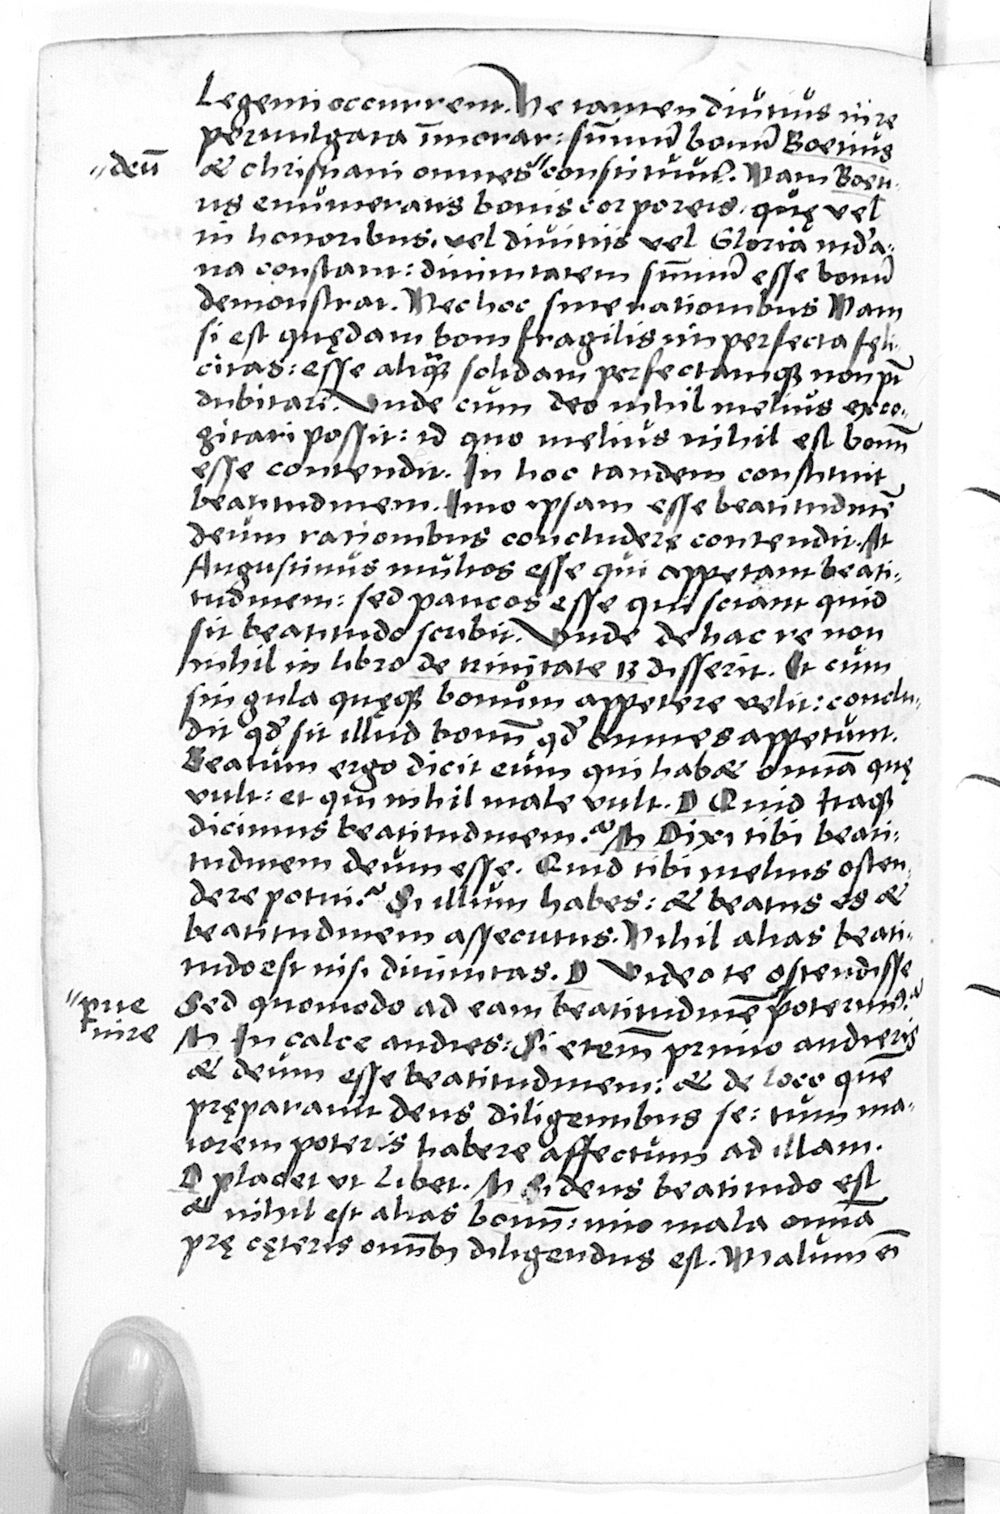 Legenti occurrent. Ne tamen diutius in re
peruulgata īmorar: sūmū bonū Boetius
„deū
& christiani omnes „constituūt. Nam Boeti-
us enumeratis bonis corporeis, quę vel
in honoribus, vel diuitiis vel Gloria mūda-
na constant: diuinitatem sūmū esse bonū
demonstrat. Nec hoc sine rationibus Nam
si est quędam boni fragilis imperfecta fęli-
citas: esse aliquā solidam perfectamqȝ non pōt
dubitari. Vnde cum deo nihil melius exco-
gitari possit: id quo melius nihil est bonū
esse contendit. In hoc tandem constituit
beatitudinem. Imo ipsam esse beatitudinē
deum rationibus concludere contendit. At
Augustinus multos esse qui appetant beati-
tudinem: sed paucos esse qui sciant quid
sit beatitudo scribit. Vnde de hac re non
nihil in libro de trinitate 13 disserit. Et cum
singula quęqȝ bonum appetere velit: conclu-
dit qd̄ sit illud bonū qd̄ omnes appetunt.
Beatum ergo dicit eum qui habet omnia quę
vult: et qui nihil male vult. D Quid Itaqȝ
dicimus beatitudinem? M Dixi tibi beati-
tudinem deum esse. Quid tibi melius osten-
dere potui? Si illum habes: & beatus es &
beatitudinem assecutus. Nihil alias beati-
tudo est nisi diuinitas. D Video te ostendisse
„pue
nire
Sed quomodo ad eam beatitudinē „poterim9?
M In calce audies: Si etenī primo audieris
& deum esse beatitudinem: & de loco quē
pręparauit deus diligentibus se: tum ma-
iorem poteris habere affectum ad illam.
D placet vt Libet. M Si deus beatitudo est
& nihil est alias bonū: imo mala omnia
prę cęteris omnibȝ diligendus est. Malum ē